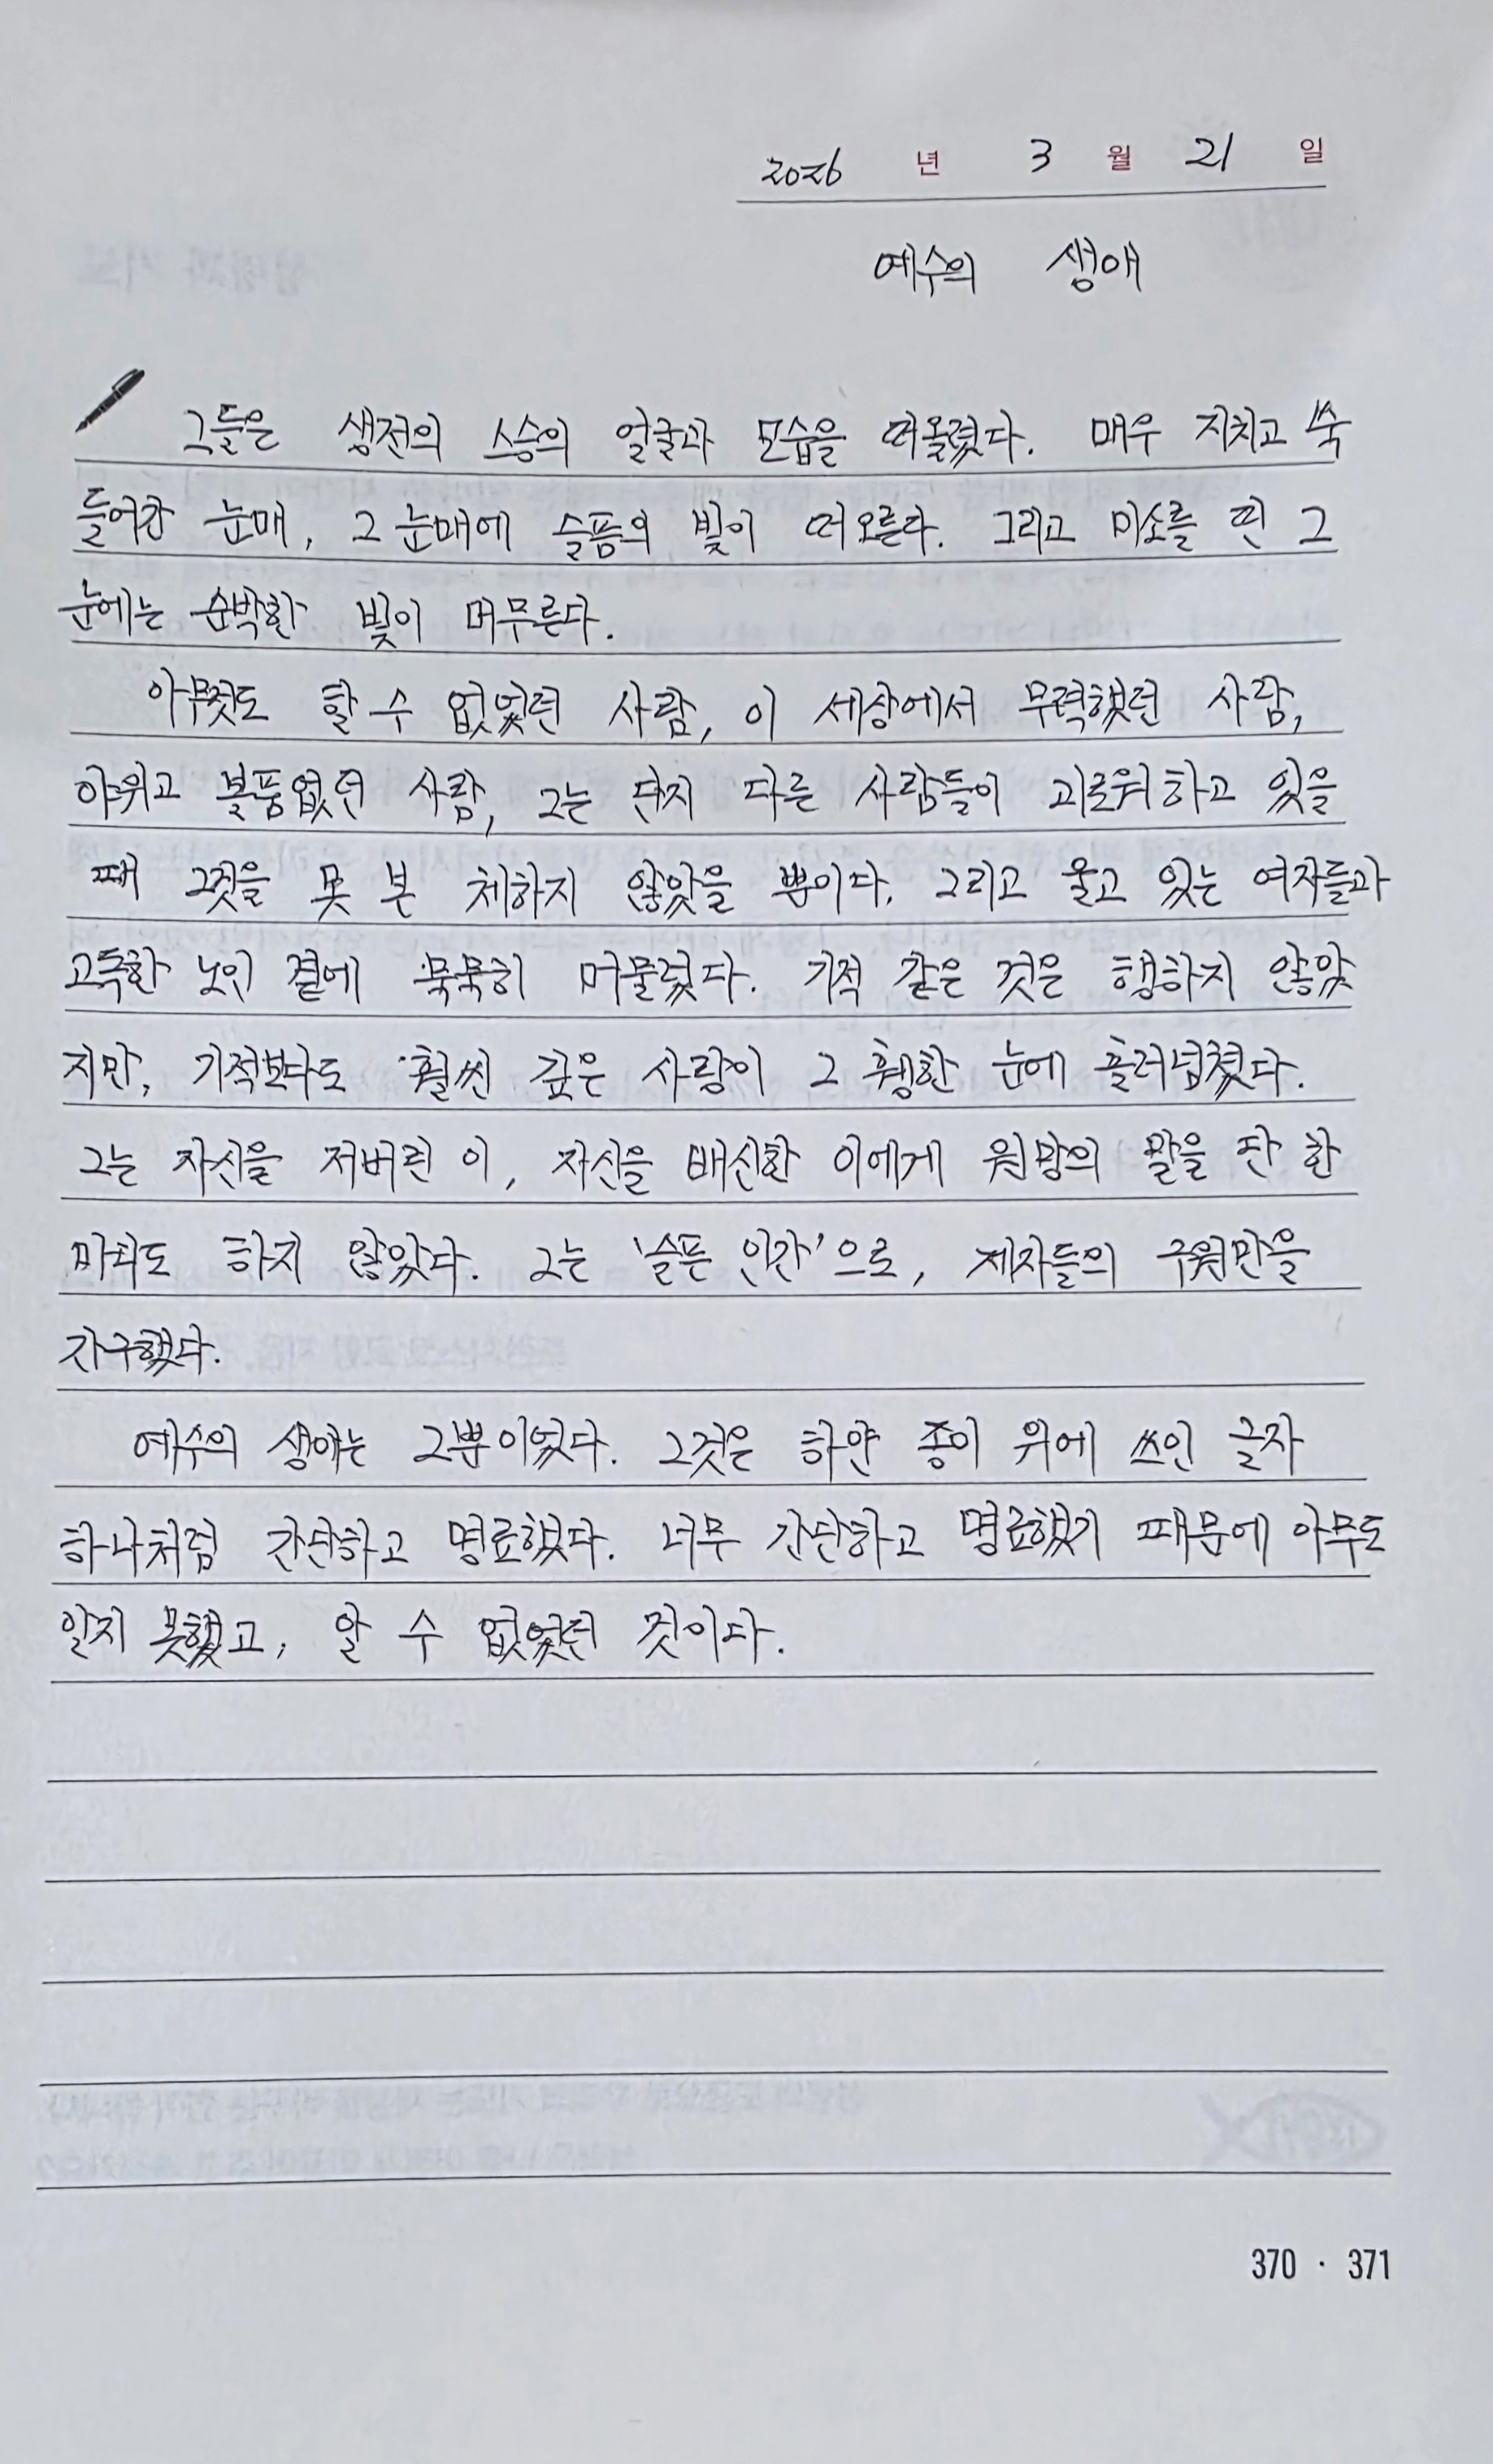 2026 년 3 월 21 일
예수의 생애
그들은 생전의 스승의 얼굴과 모습을 떠올렸다. 매우 지치고 쑥
들어간 눈매, 그 눈매에 슬픔의 빛이 떠오른다. 그리고 미소를 띤 그
눈에는 순박한 빛이 머무른다.
아무것도 할 수 없었던 사람, 이 세상에서 무력했던 사람,
야위고 볼품없던 사람, 그는 단지 다른 사람들이 괴로워하고 있을
때 그것을 못 본 체하지 않았을 뿐이다. 그리고 울고 있는 여자들과
고독한 노인 곁에 묵묵히 머물렀다. 기적 같은 것은 행하지 않았
지만, 기적보다도 훨씬 깊은 사랑이 그 휑한 눈에 흘러넘쳤다.
그는 자신을 저버린 이, 자신을 배신한 이에게 원망의 말을 단 한
마디도 하지 않았다. 그는 '슬픈 인간'으로, 제자들의 구원만을
간구했다.
예수의 생애는 그뿐이었다. 그것은 하얀 종이 위에 쓰인 글자
하나처럼 간단하고 명료했다. 너무 간단하고 명료했기 때문에 아무도
알지 못했고, 알 수 없었던 것이다.
370 · 371